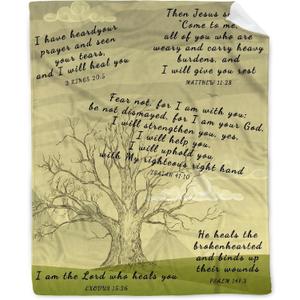 I have heardyour
prayer and seen
your tears,
and I will heal you
2 KINGS 20:5
Then Jesus
"Come to me,
all of you who are
weary and carry heavy
burdens, and
I will give you rest
MATTHEW 11:28
Fear not, for I am with you;
be not dismayed, for I am your God.
I will strengthen you, yes,
I will help you,
I will uphold you
with My righteous right hand
ISAIAH 41:10
He heals the
brokenhearted
and binds up
their wounds
PSALM 147:3
I am the Lord who heals you
EXODUS 15:26